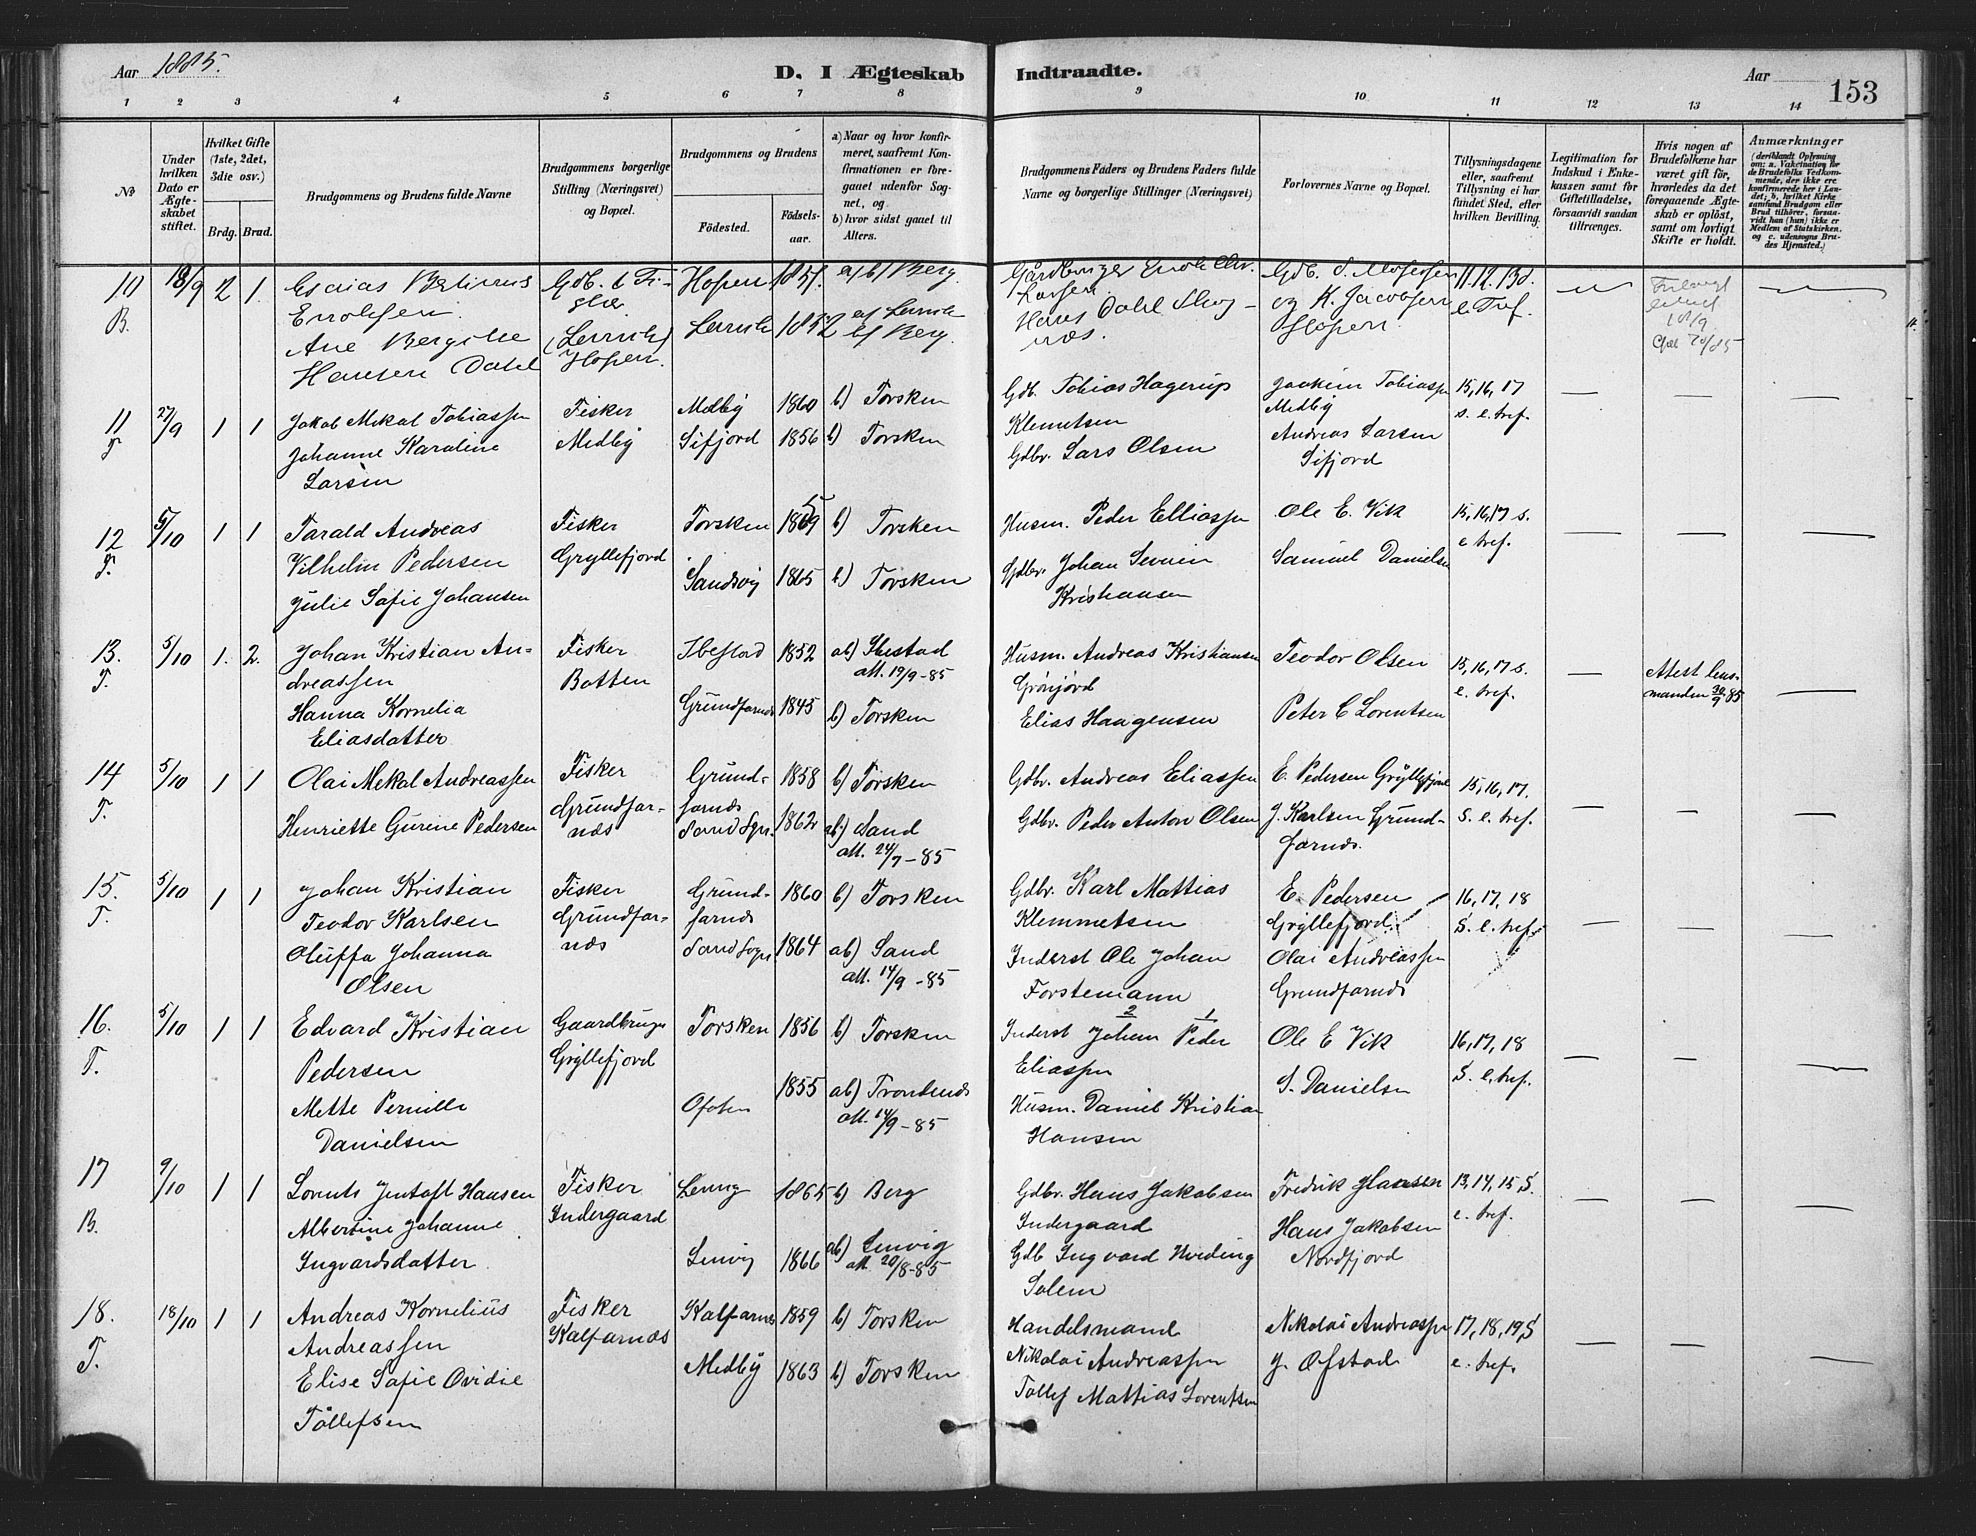 Aar 1885.
D. I Ægteskab Indtraadte.
Aar 153
1 2 3 4 5 6 7 8 9 10 11 12 13 14
No
Under hvilken Dato er Ægteskabet stiftet.
Hvilket Gifte (1ste, 2det, 3die osv.)
Brdg. Brud.
Brudgommens og Brudens fulde Navne
Brudgommens borgerlige Stilling (Næringsvei) og Bopæl.
Brudgommens og Brudens
Fødested.
Fødselsaar.
a) Naar og hvor konfirmeret, saafremt Konfirmationen er foregaaet udenfor Sognet, og
b) hvor sidst gaaet til Alters.
Brudgommens Faders og Brudens Faders fulde Navne og borgerlige Stillinger (Næringsvei)
Forlovernes Navne og Bopæl.
Tillysningsdagene eller, saafremt Tillysning ei har fundet Sted, efter hvilken Bevilling.
Legitimation for Indskud i Enkekassen samt for Giftetilladelse, forsaavidt saadan tiltrænges.
Hvis nogen af Brudefolkene har været gift før, hvorledes da det foregaaende Ægteskab er opløst, samt om lovligt Skifte er holdt.
Anmærkninger
(deriblandt Oplysning om: a. Vakcination for de Brudefolks Vedkommende, der ikke ere konfirmerede her i Landet; b. hvilket Kirkesamfund Brudgom eller Brud tilhører, forsaavidt han (hun) ikke er Medlem af Statskirken, og c. udensogns Brudes Hjemsted.)
10 18/9 2 1. Esaias Bertinus Gdb. & Fi- Hopen 1857. a) b) Berg. Gårdbruger Enok Chr. Gdb. S. Mosessen 11. 12. 13 S.
B. Enoksen. sker Larsen. og K. Jacobsen e. Tref.
Ane Bergitte (Lenvik) Lenvik 1832 a) Lenvik Hans Dahl Skog- Hopen.
Hansen Dahl Hopen. b) Berg. næs.
11 27/9 1 1 Jakob Mekal Tobiassen Fisker Medby 1860 b) Torsken Gdb. Tobias Hagerup Joakim Tobiassen 15, 16, 17
T Johanne Karoline Medby Sifjord 1856 b) Torsken Klemetsen Medby s. e. tref.
Larsen Gdbr. Lars Olsen Andreas Larsen
Sifjord
12 5/10 1 1 Tarald Andreas Fisker Torsken b) Torsken Husm. Peder Elliassen Ole E. Vik 15, 16, 17 s.
T. Vilhelm Pedersen Gryllefjord Gdbr. Johan Severin Samuel Danielsen e tref.
Julie Sofie Johansen Sandvig 1865 b) Torsken Kristiansen
13. 5/10 1. 2. Johan Kristian An- Fisker Ibestad 1852 ab) Ibestad Husm. Andreas Kristiansen Teodor Olsen 15, 16, 17 s. Attest lens-
T. dreassen Botten att. 19/9-85 Grønjord e. tref. manden 30/9 85
Hanna Kornelia Grundfarnæs 1845 b) Torsken Elias Haagensen Peter C Lorentsen
Eliasdatter
14 5/10 1 1 Olai Mekal Andreassen Fisker Grund- 1858 b) Torsken Gdbr. Andreas Eliassen E. Pedersen Gryllefjord 15, 16, 17.
T. Henriette Gurine Pedersen Grundfar- farnæs
næs Sand Sgn. 1862 ab) Sand Gdbr. Peder Anton Olsen J. Karlsen Grund- S. e. tref.
att. 24/7-85 farnæs.
15. 5/10 1 1 Johan Kristian Fisker Grund- 1860 b) Torsken Gdbr. Karl Mattias E. Pedersen 16, 17, 18
T. Teodor Karlsen Grundfar- farnæs Klemmetsen Gryllefjord. S. e. tref.
Oluffa Johanna næs Sand Sogn 1864 ab) Sand Inderst Ole Johan Olai Andreassen
Olsen att. 14/9-85 Forstemann Grundfarnæs
16. 5/10 1 1 Edvard Kristian Gaardbruger Torsken 1856 b) Torsken Inderst Johan 2 Peder 1 Ole E Vik 16, 17, 18
T. Pedersen Gryllefjord Eliassen S. e. tref.
Mette Pernille Ofoten 1855 ab) Trondenæs Husm. Daniel Kristian S. Danielsen
Danielsen att. 14/9-85 Hansen
17 9/10 1 1 Lorents Jentoft Hansen Fisker Lenvig 1865 b) Berg Gdbr. Hans Jakobsen Fredrik Hansen 13, 14, 15, S.
B. Albertine Johanne Indergaard Indergaard Hans Jakobsen e. tref.
Ingvardsdatter Lenvig 1866 ab) Lenvig Gdb Ingvard Hveding Nordfjord
att. 20/8-85 Solem
18. 18/10 1 1 Andreas Kornelius Fisker Kalfarnæs 1859 b) Torsken Handelsmand Nikolai Andreassen 17, 18, 19, S
T. Andreassen Kalfarnæs Nikolai Andreassen J. Ofstad e. tref.
Elise Sofie Ovidie Medby 1863 b) Torsken Tollef Mattias Lorentsen
Tollefsen